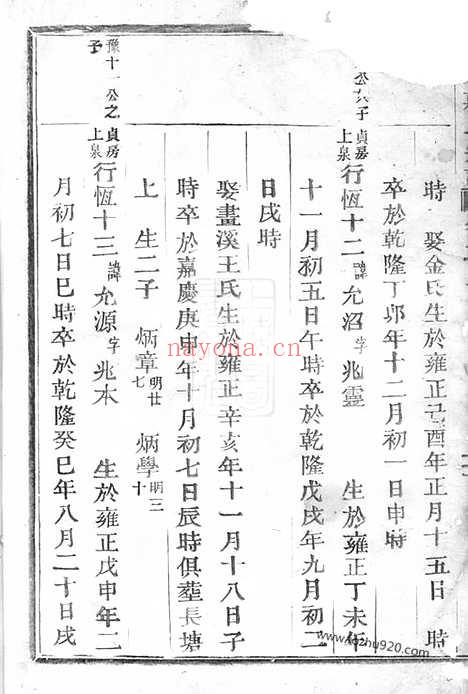 時 娶金氏生於雍正己酉年正月十五日 時
卒於乾隆丁卯年十二月初一日申時
公 子 貞房上泉 行恆十二 諱 允沼 字 兆靈 生於雍正丁未年
十一月初五日午時卒於乾隆戊戌年九月初二
日戌時
娶畫溪王氏生於雍正辛亥年十一月十八日子
時卒於嘉慶庚申年十月初七日辰時俱塟長塘
上 生二子 炳章 明廿七 炳學 明三十
豫十一公之子 貞房上泉 行恆十三 諱 允源 字 兆本 生於雍正戊申年二
月初七日巳時卒於乾隆癸巳年八月二十日戌
nayona.cn